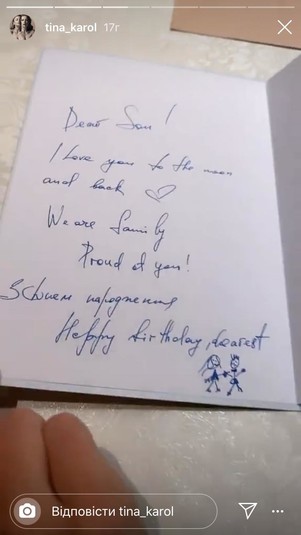 tina_karol 17г
Dear Son!
I love you to the moon
and back
We are family
Proud of you!
З Днем народження
Happy birthday, dearest
Відповісти tina_karol